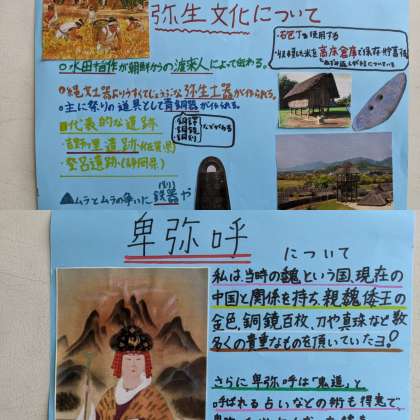 弥生文化について
・石包丁を使用する
・収穫した米を高床倉庫で保存・貯蓄
○水田稲作が朝鮮からの渡来人によって伝わる。
○縄文土器よりうすくてじょうぶな弥生土器が作られる。
○主に祭りの道具として青銅器が作られる。
銅鐸
銅鏡
銅剣
などがある
■代表的な遺跡
・吉野ヶ里遺跡(佐賀県)
・登呂遺跡(静岡県)
ムラとムラの争いに鉄器や
卑弥呼について
私は、当時の魏という国、現在の
中国と関係を持ち、親魏倭王の
金色、銅鏡百枚、刀や真珠など数
多くの貴重なものを頂いていたヨ!
さらに卑弥呼は「鬼道」と
呼ばれる占いなどの術も得意で、